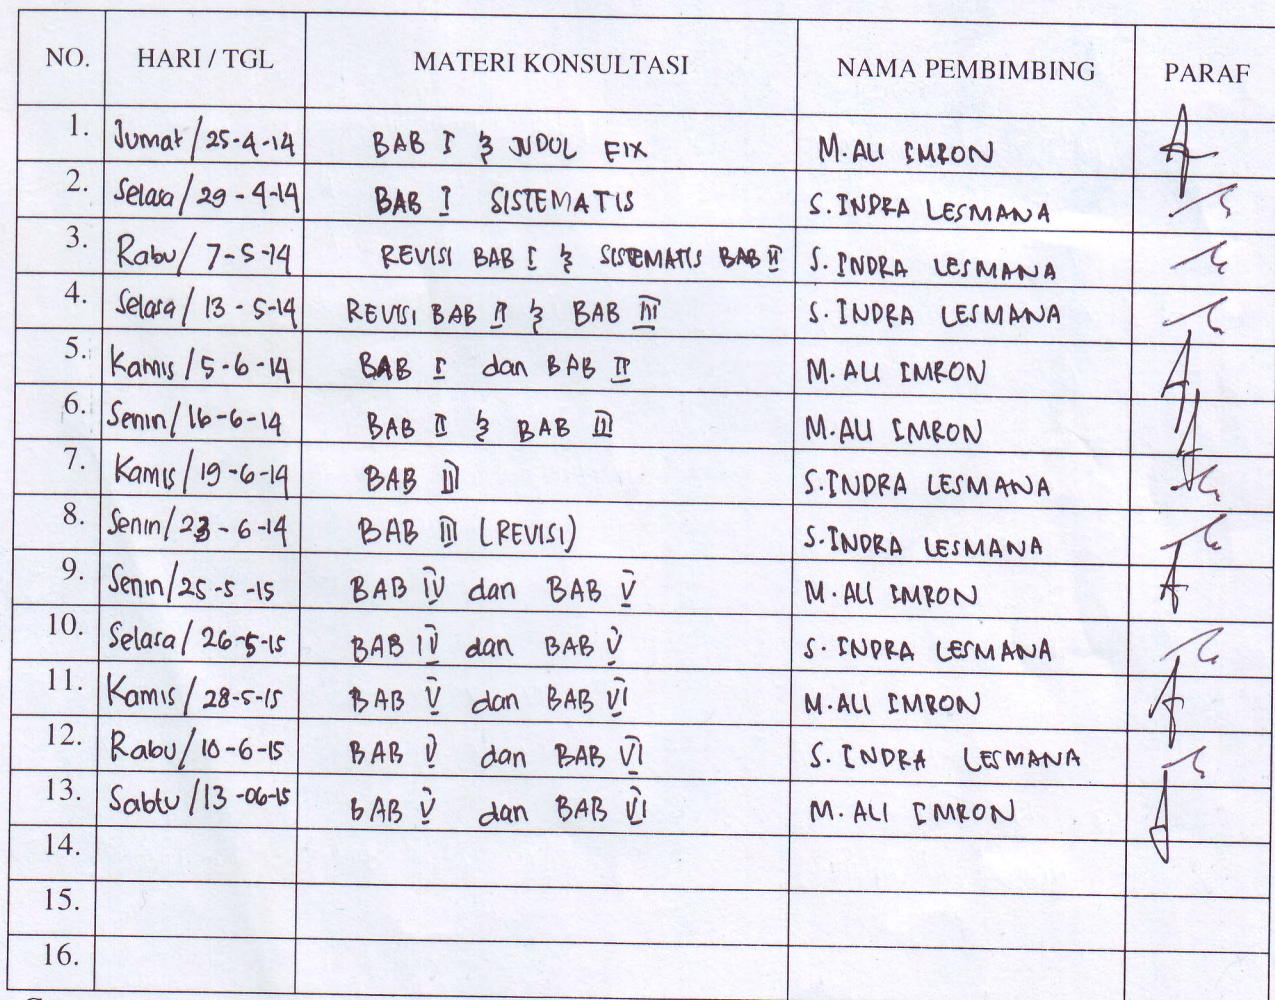 NO. HARI / TGL MATERI KONSULTASI NAMA PEMBIMBING PARAF
1. Jumat / 25-4-14 BAB I & JUDUL FIX M. ALI IMRON
2. Selasa / 29-4-14 BAB I SISTEMATIS S. INDRA LESMANA
3. Rabu / 7-5-14 REVISI BAB I & SISTEMATIS BAB II S. INDRA LESMANA
4. Selasa / 13-5-14 REVISI BAB II & BAB III S. INDRA LESMANA
5. Kamis / 5-6-14 BAB I dan BAB II M. ALI IMRON
6. Senin / 16-6-14 BAB II & BAB III M. ALI IMRON
7. Kamis / 19-6-14 BAB III S. INDRA LESMANA
8. Senin / 23-6-14 BAB III (REVISI) S. INDRA LESMANA
9. Senin / 25-5-15 BAB IV dan BAB V M. ALI IMRON
10. Selasa / 26-5-15 BAB IV dan BAB V S. INDRA LESMANA
11. Kamis / 28-5-15 BAB V dan BAB VI M. ALI IMRON
12. Rabu / 10-6-15 BAB V dan BAB VI S. INDRA LESMANA
13. Sabtu / 13-06-15 BAB V dan BAB VI M. ALI IMRON
14.
15.
16.